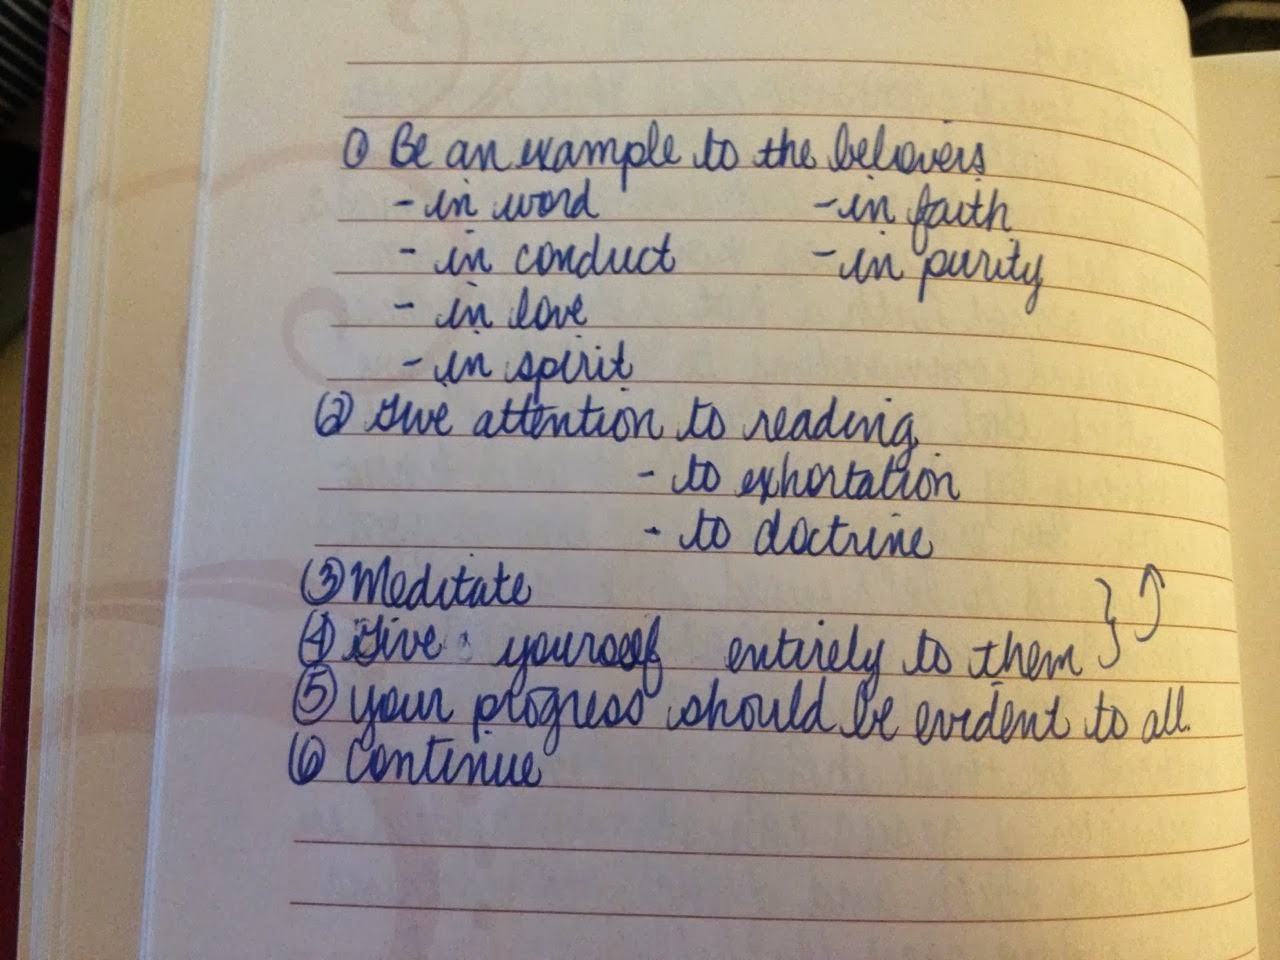 ① Be an example to the believers
- in word - in faith
- in conduct - in purity
- in love
- in spirit
② Give attention to reading
- to exhortation
- to doctrine
③ Meditate
④ Give yourself entirely to them } ↑
⑤ your progress should be evident to all.
⑥ Continue